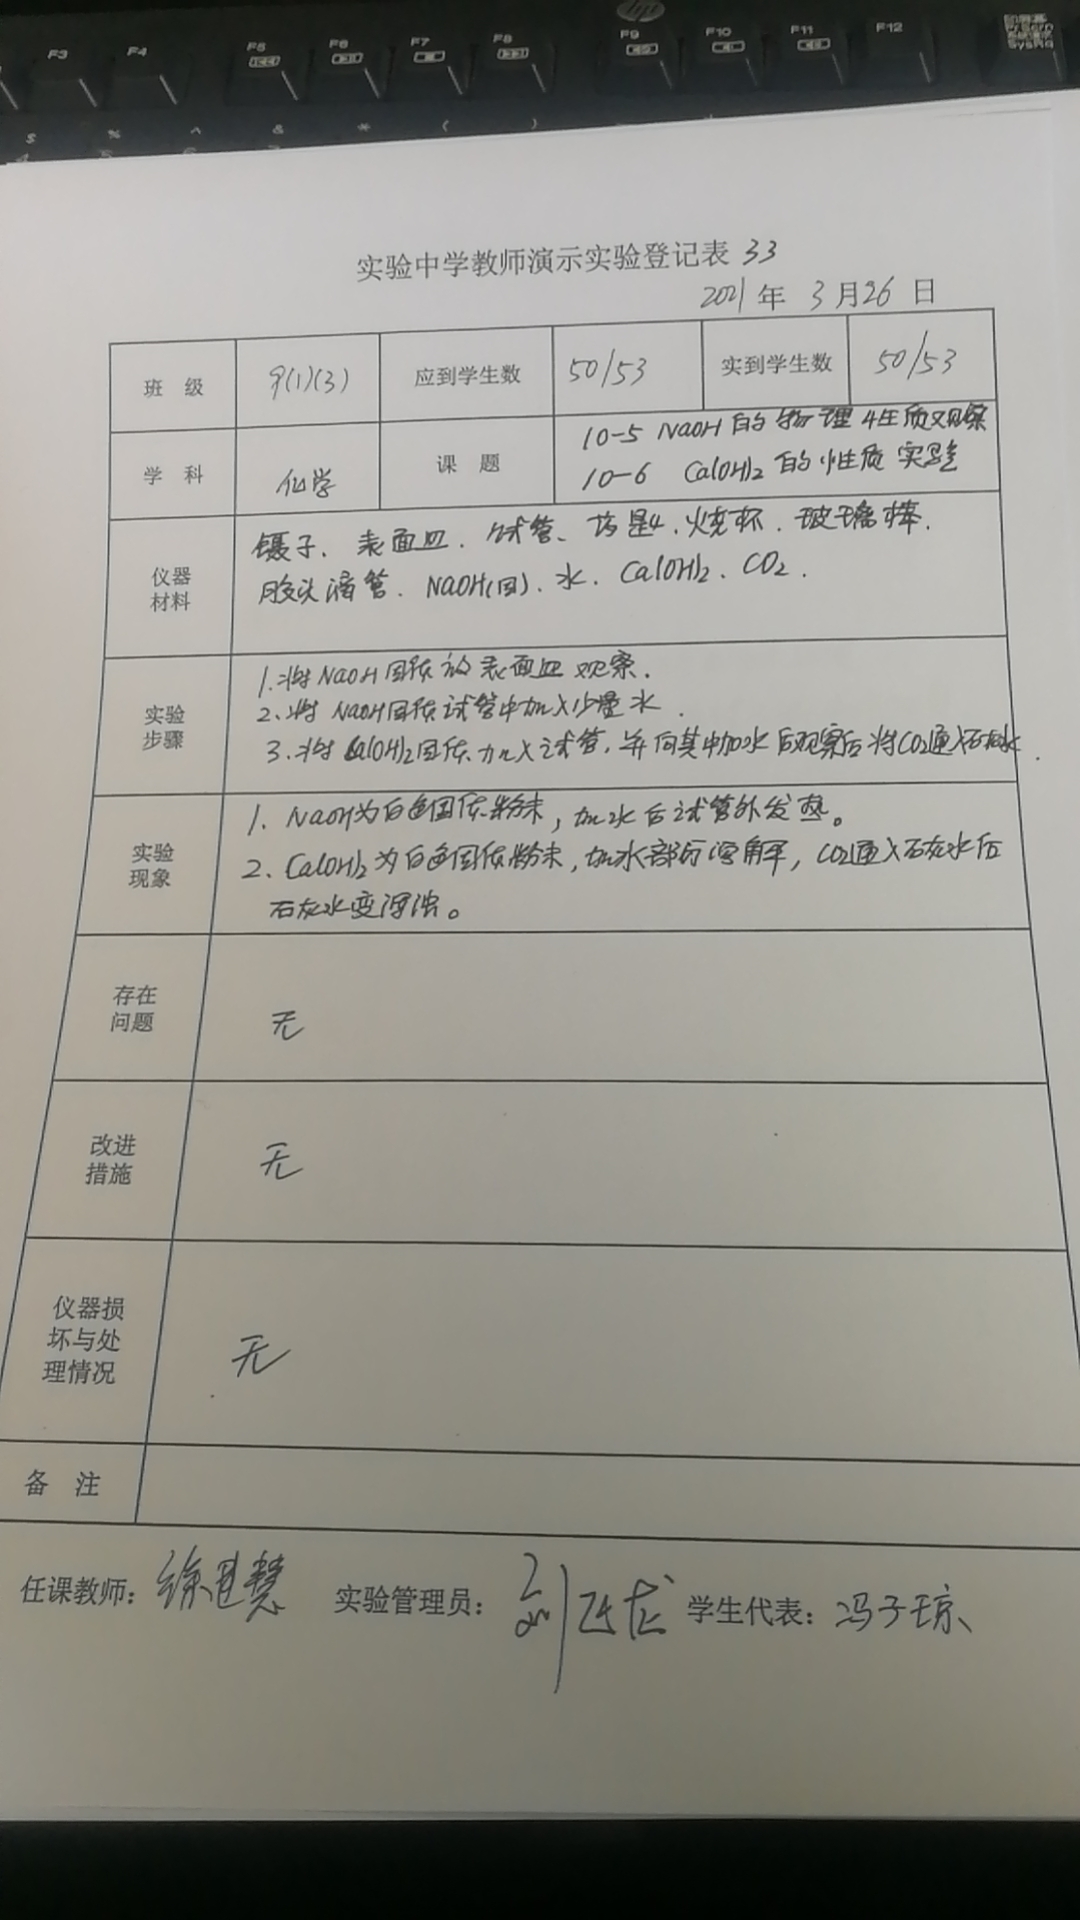 F3 F4 F5 F6 F7 F8 F9 F10 F11 F12
SysRq
$ % ^ & * ( )
实验中学教师演示实验登记表 33
2021 年 3 月 26 日
班 级 9(1)(3) 应到学生数 50/53 实到学生数 50/53
学 科 化学 课 题 10-5 NaOH的物理性质观察
10-6 Ca(OH)2的性质实验
仪器材料
镊子、表面皿、试管、药匙、烧杯、玻璃棒、
胶头滴管、NaOH(固)、水、Ca(OH)2、CO2.
实验步骤
1.将NaOH固体放表面皿观察.
2.将NaOH固体试管中加入少量水.
3.将Ca(OH)2固体加入试管,并向其中加水后观察后将CO2通入石灰水.
实验现象
1. NaOH为白色固体粉末,加水后试管外发热。
2. Ca(OH)2为白色固体粉末,加水部分溶解,CO2通入石灰水后
石灰水变浑浊。
存在问题
无
改进措施
无
仪器损坏与处理情况
无
备 注
任课教师: 实验管理员: 刘飞龙 学生代表: 冯子琼